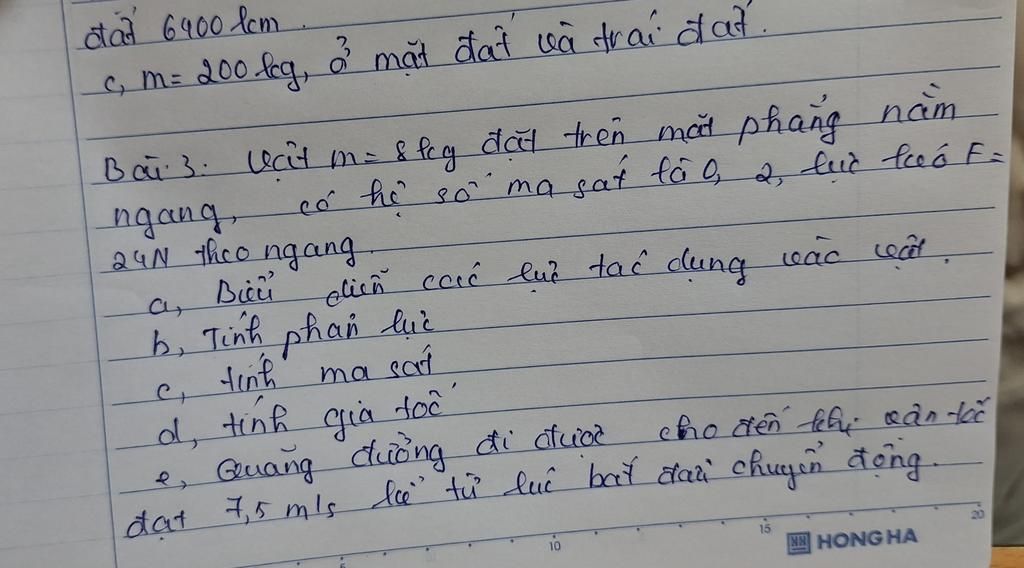 đất 6400 km.
c, m = 200 kg, ở mặt đất và trái đất.
Bài 3: Vật m = 8 kg đặt trên mặt phẳng nằm
ngang, có hệ số ma sát là 0,2, lực kéo F =
24N theo ngang.
a, Biểu diễn các lực tác dụng vào vật.
b, Tính phản lực
c, tính ma sát
d, tính gia tốc
e, Quãng đường đi được cho đến khi vận tốc
đạt 7,5 m/s kể từ lúc bắt đầu chuyển động.
5 10 15 20
HONG HA